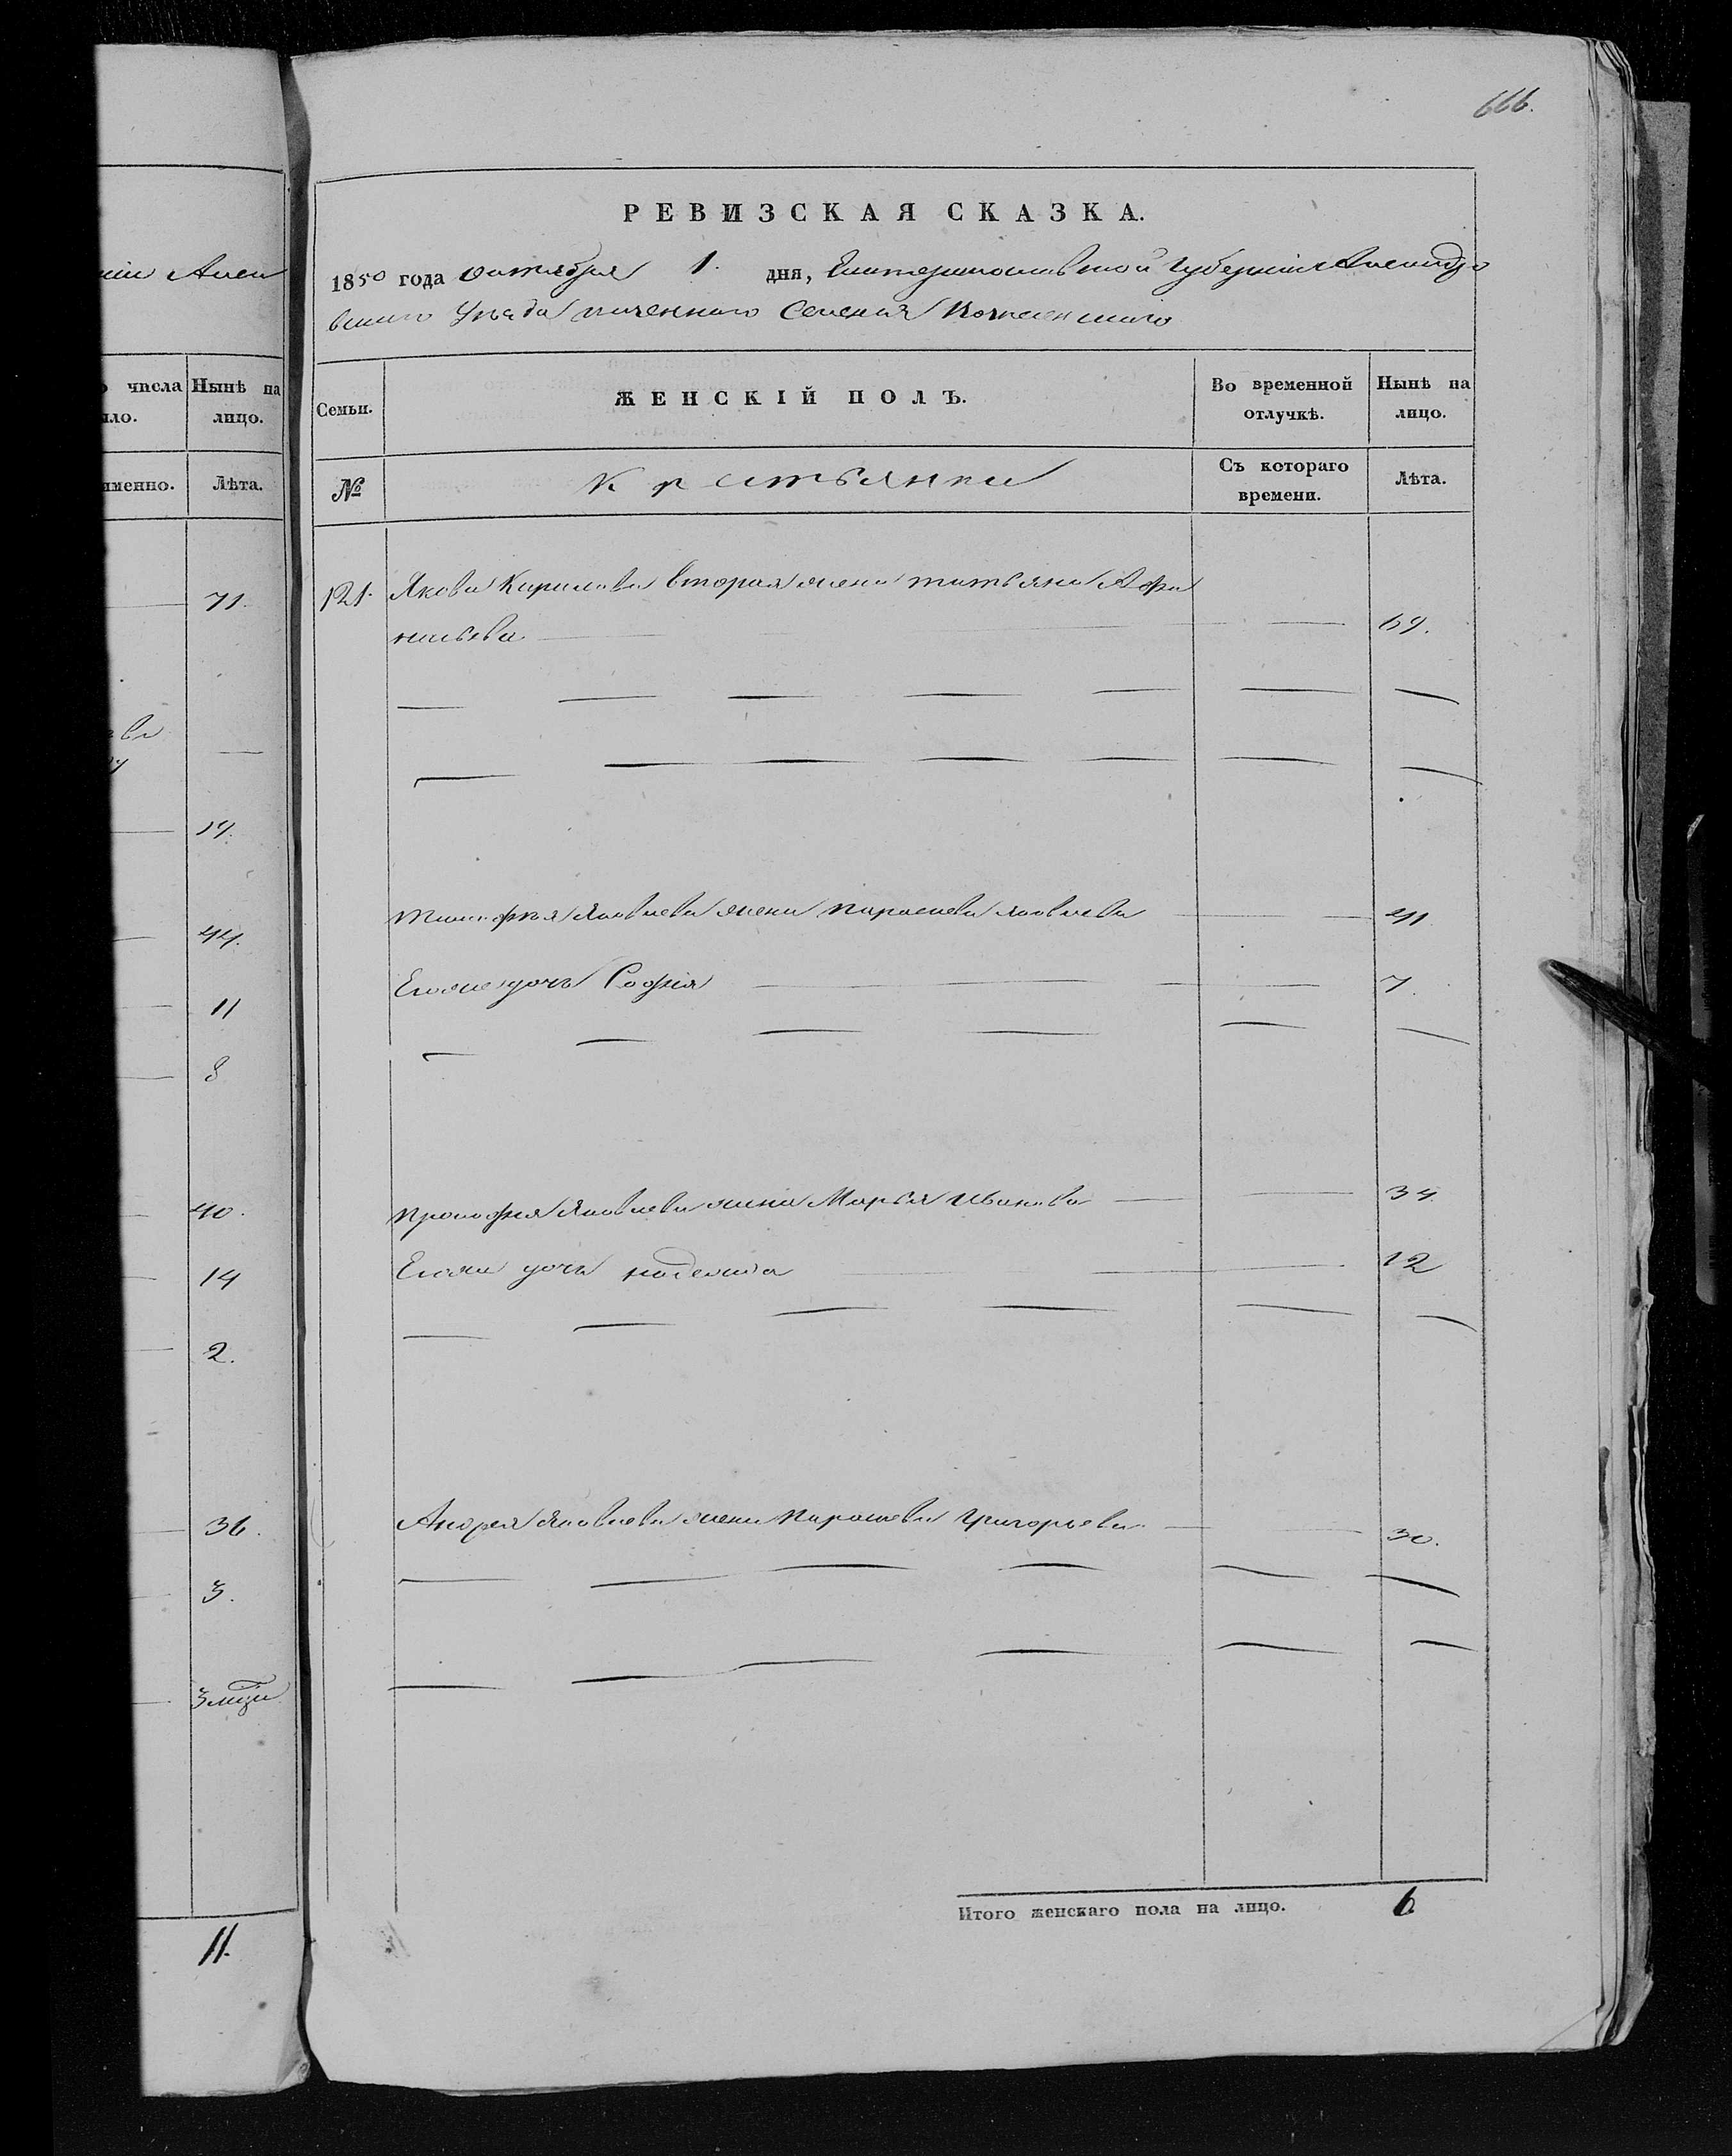 666.
нiи Алек
числа Нынѣ на
ло. лицо.
именно. Лѣта.
71.
ва
19.
44.
11
8
40.
14
2.
36.
3.
3 мцы
11.
РЕВИЗСКАЯ СКАЗКА.
1850 года октября 1. дня, Екатеринославской Губернiи Александро
вскаго Уѣзда казеннаго Селенiя
Семьи. ЖЕНСКIЙ ПОЛЪ. Во временной отлучкѣ. Нынѣ на лицо.
№ Крестьянки Съ котораго времени. Лѣта.
121. Якова Кирилова вторая жена татьяна Афа
насьева 69.
тимофея Яковлева жена параскева яковлева 41
Егоже дочь Софiя 7.
прокофия Яковлева жена Марья Иванова 34.
Егоже дочь надежда 12
Андрея Яковлева жена параскева Григорьева 30.
Итого женскаго пола на лицо. 6